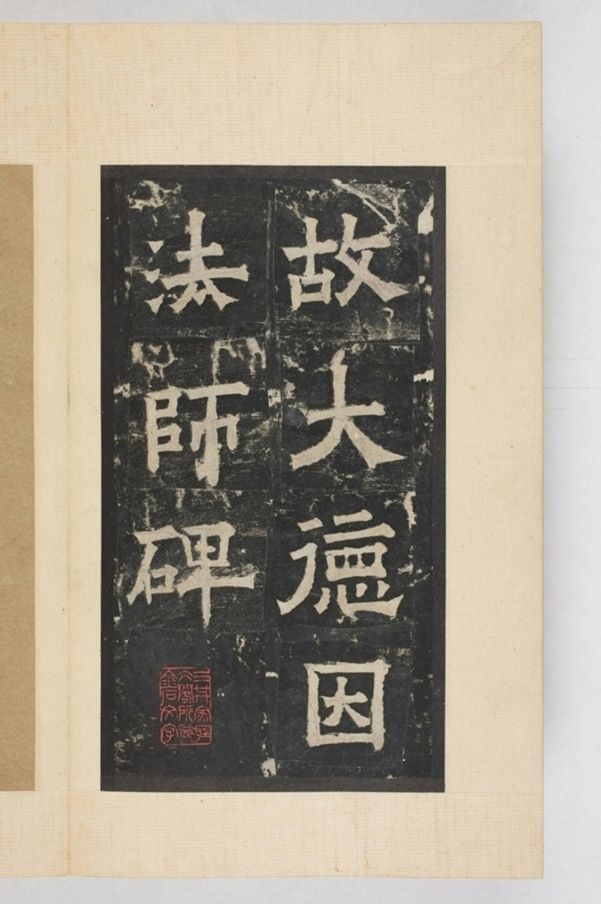 故大德因
法師碑